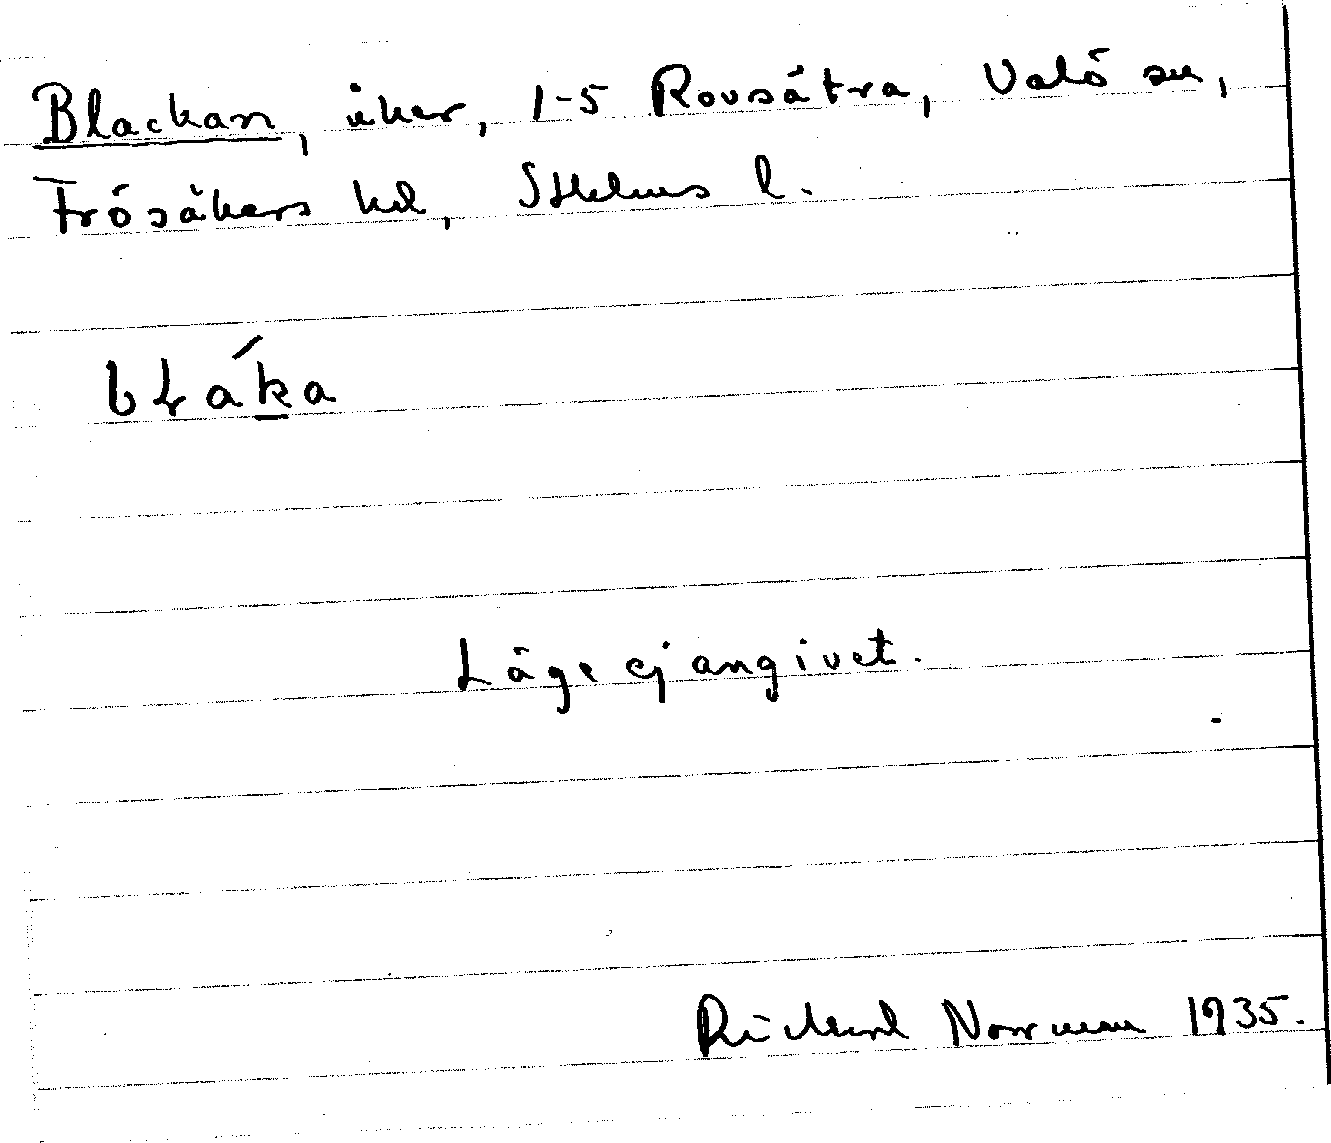 Blackan, åker, 1-5 Rovsätra, Valö sn,
Frösåkers hd, Sthlms l.
bɫáka
Läge ej angivet.
Rickard Norrman 1935.